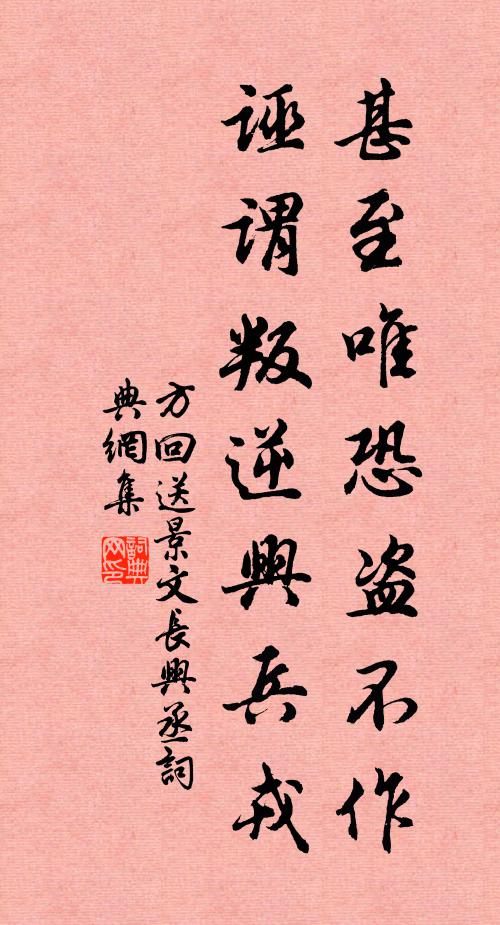 甚至唯恐盗不作
誣謂叛逆興兵戎
方回送景文長興丞詞
典網集
詞典網印